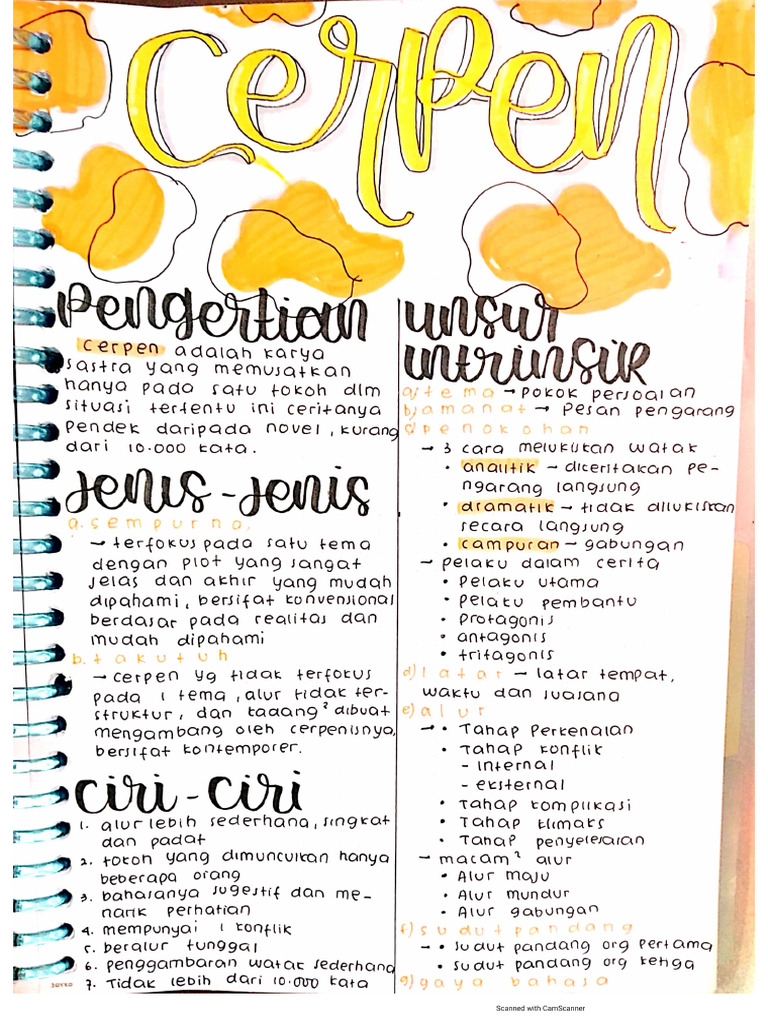 Cerpen
Pengertian
Cerpen adalah karya
sastra yang memusatkan
hanya pada satu tokoh dlm
situasi tertentu ini ceritanya
pendek daripada novel, kurang
dari 10.000 kata.
Jenis-Jenis
a. sempurna,
→ terfokus pada satu tema
dengan plot yang sangat
jelas dan akhir yang mudah
dipahami, bersifat konvensional
berdasar pada realitas dan
mudah dipahami
b. takutuh
→ cerpen yg tidak terfokus
pada 1 tema, alur tidak ter-
struktur, dan kadang² dibuat
mengambang oleh cerpenisnya,
bersifat kontemporer.
Ciri-Ciri
1. alur lebih sederhana, singkat
dan padat
2. tokoh yang dimunculkan hanya
beberapa orang
3. bahasanya sugestif dan me-
narik perhatian
4. mempunyai 1 konflik
5. beralur tunggal
6. penggambaran watak sederhana
7. Tidak lebih dari 10.000 kata
unsur
intrinsik
a) tema → pokok persoalan
b) amanat → Pesan pengarang
c) penokohan
→ 3 cara melukiskan watak
• analitik – diceritakan pe-
ngarang langsung
• dramatik → tidak dilukiskan
secara langsung
• campuran – gabungan
– pelaku dalam cerita
• Pelaku utama
• Pelaku pembantu
• protagonis
• antagonis
• tritagonis
d) latar – latar tempat,
waktu dan suasana
e) alur
→ • Tahap Perkenalan
• Tahap konflik
- internal
- eksternal
• Tahap komplikasi
• Tahap klimaks
• Tahap penyelesaian
– macam² alur
• Alur maju
• Alur mundur
• Alur gabungan
f) sudut pandang
→ • sudut pandang org pertama
• sudut pandang org ketiga
g) gaya bahasa
Scanned with CamScanner